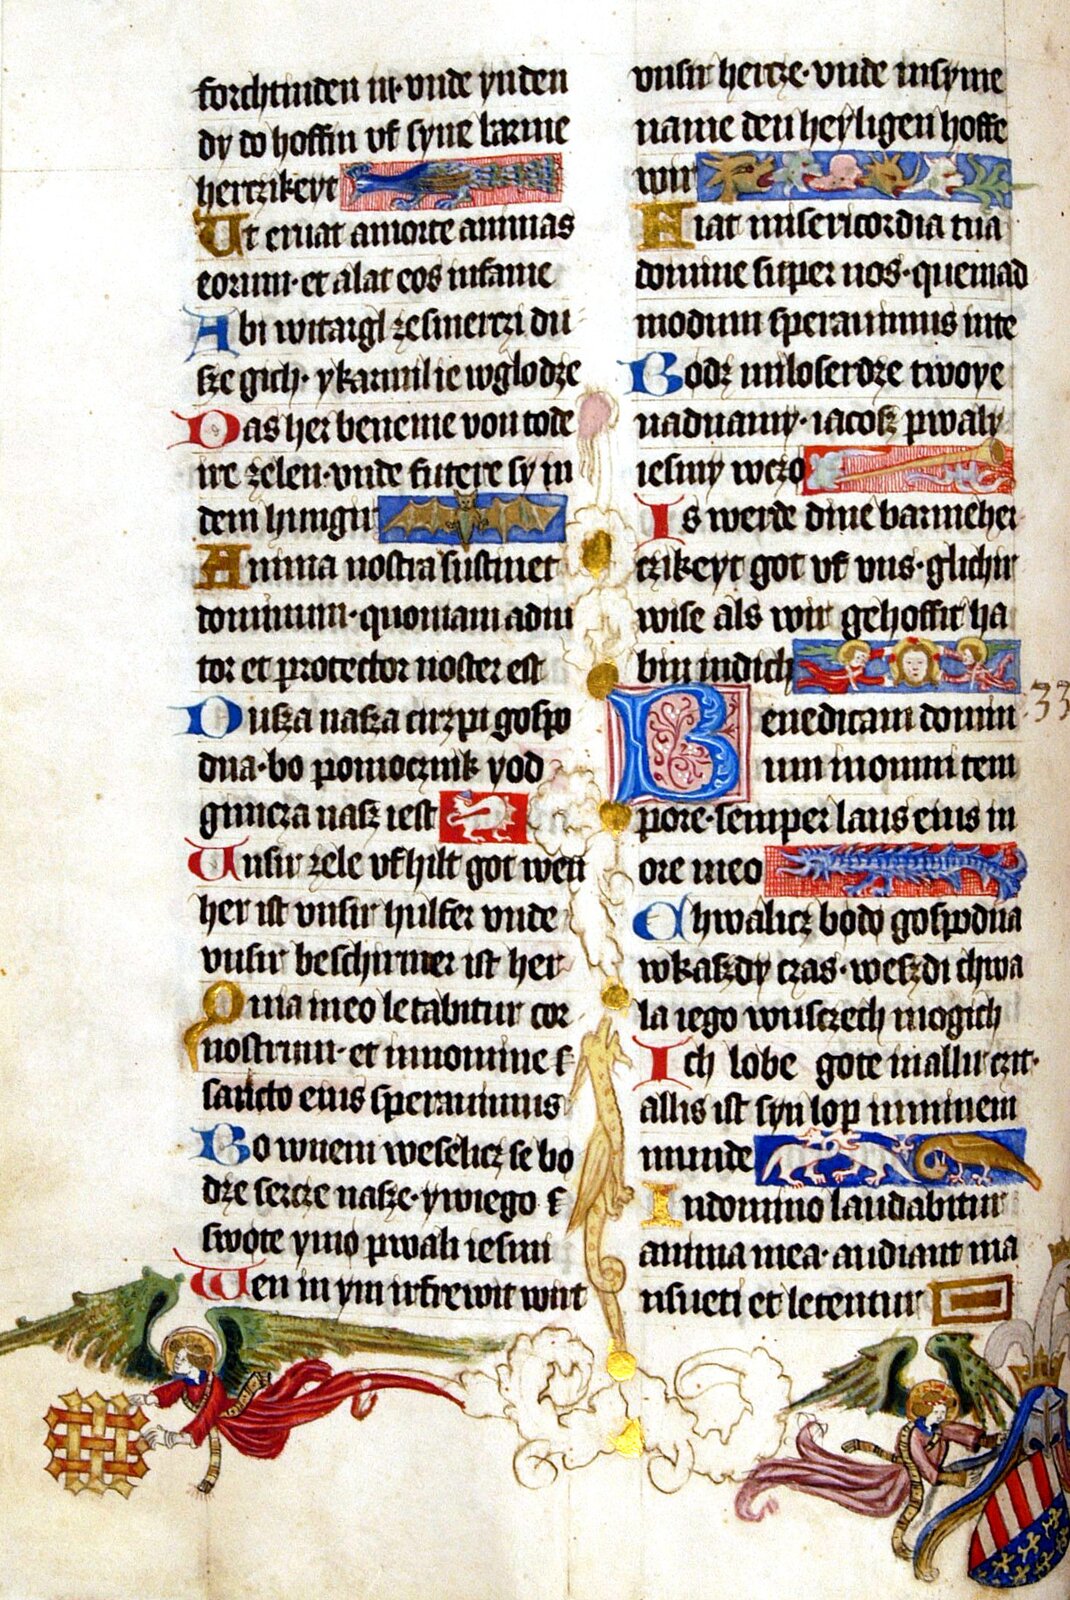 forchtinden in· vnde ynden
dy do hoffin vf syne barme
hertzikeyt
Ut eruat a morte animas
eorum· et alat eos in fame
Abi witargl zesmertzi du
sze gich· ykarmil ie wglodze
Das her beneme von tode
ire zelen· vnde futere sy in
dem hungir
Anima nostra sustinet
dominum· quoniam adiu
tor et protector noster est
Dusza nasza cirzpi gospo
dna· bo pomocznik yod
gimcza nasz iest
Unsir zele vfhilt got wen
her ist vnsir hulfer vnde
vnsir beschirmer ist her
Quia in eo letabitur cor
nostrum· et in nomine
sancto eius sperauimus
Bo wnem weselicz se bo
dze sercze nasze· ywiego
swote ymo pwali iesmi
Wen in ym irfrewit wirt
vnsir hertze· vnde in syme
name den heyligen hoffe
wir
Fiat misericordia tua
domine super nos· quemad
modum sperauimus in te
Bodz miloserdze twoye
nadnamy· iacosz pwaly
iesmy wczo
Is werde dine barmeher
czikeyt got vf vns· glichir
wise als wir gehoffit ha
bin in dich
Benedicam domin 33
um in omni tem
pore· semper laus eius in
ore meo
Chwalicz bodo gospodna
wkaszdy czas· weszdi chwa
la iego wusczech mogich
Ich lobe gote in allir czit·
allis ist syn lop in minem
munde
In domino laudabitur
anima mea· audiant ma
nsueti et letentur